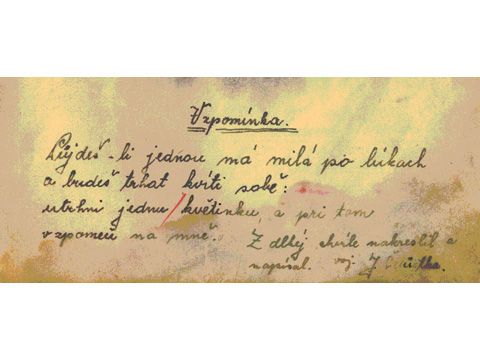 Vzpomínka.
Půjdeš-li jednou má milá po lúkach
a budeš trhat kvítí sobě:
utrhni jednu květinku, a pri tom
vzpomeň na mně.
Z dlhej chvíle nakreslil a
napísal. voj.